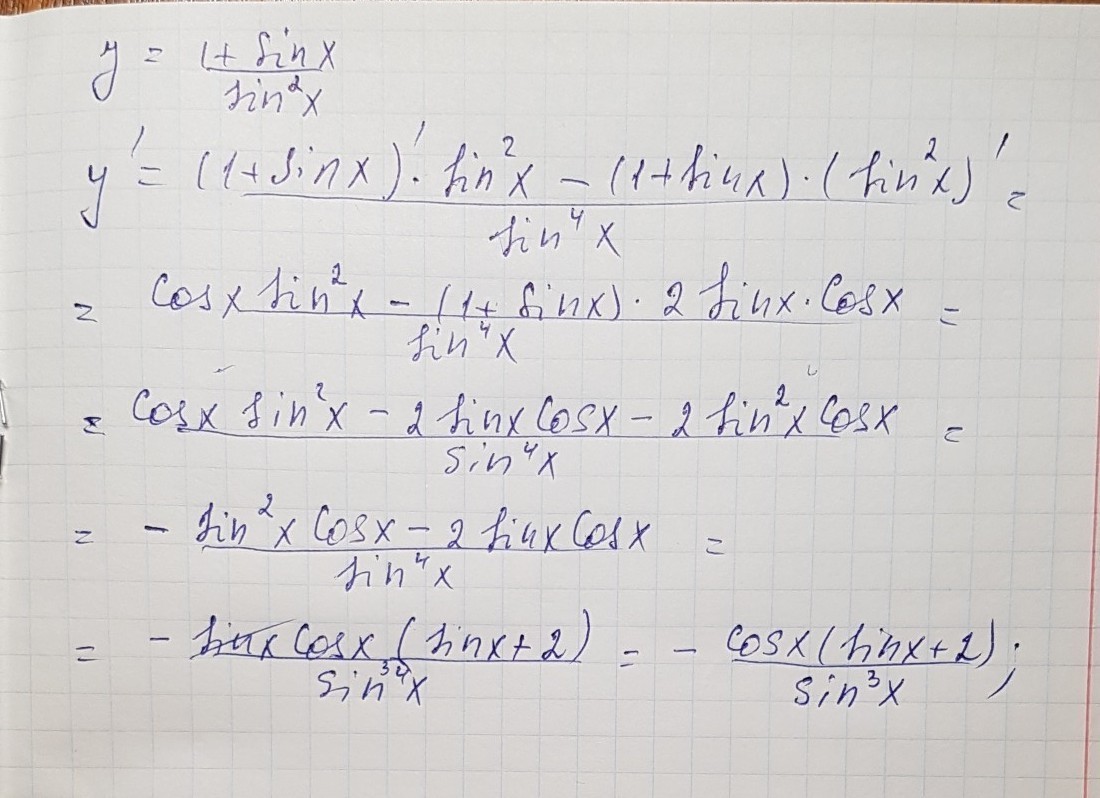 y = (1 + sin x) / sin²x
y' = ((1 + sin x)' · sin²x − (1 + sin x) · (sin²x)') / sin⁴x =
= (cos x sin²x − (1 + sin x) · 2 sin x · cos x) / sin⁴x =
= (cos x sin²x − 2 sin x cos x − 2 sin²x cos x) / sin⁴x =
= (− sin²x cos x − 2 sin x cos x) / sin⁴x =
= − sin x cos x (sin x + 2) / sin³⁴x = − cos x (sin x + 2) / sin³x ;